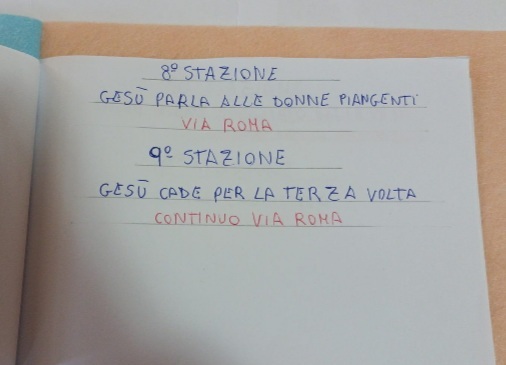 8º STAZIONE
GESÙ PARLA ALLE DONNE PIANGENTI
VIA ROMA
9º STAZIONE
GESÙ CADE PER LA TERZA VOLTA
CONTINUO VIA ROMA